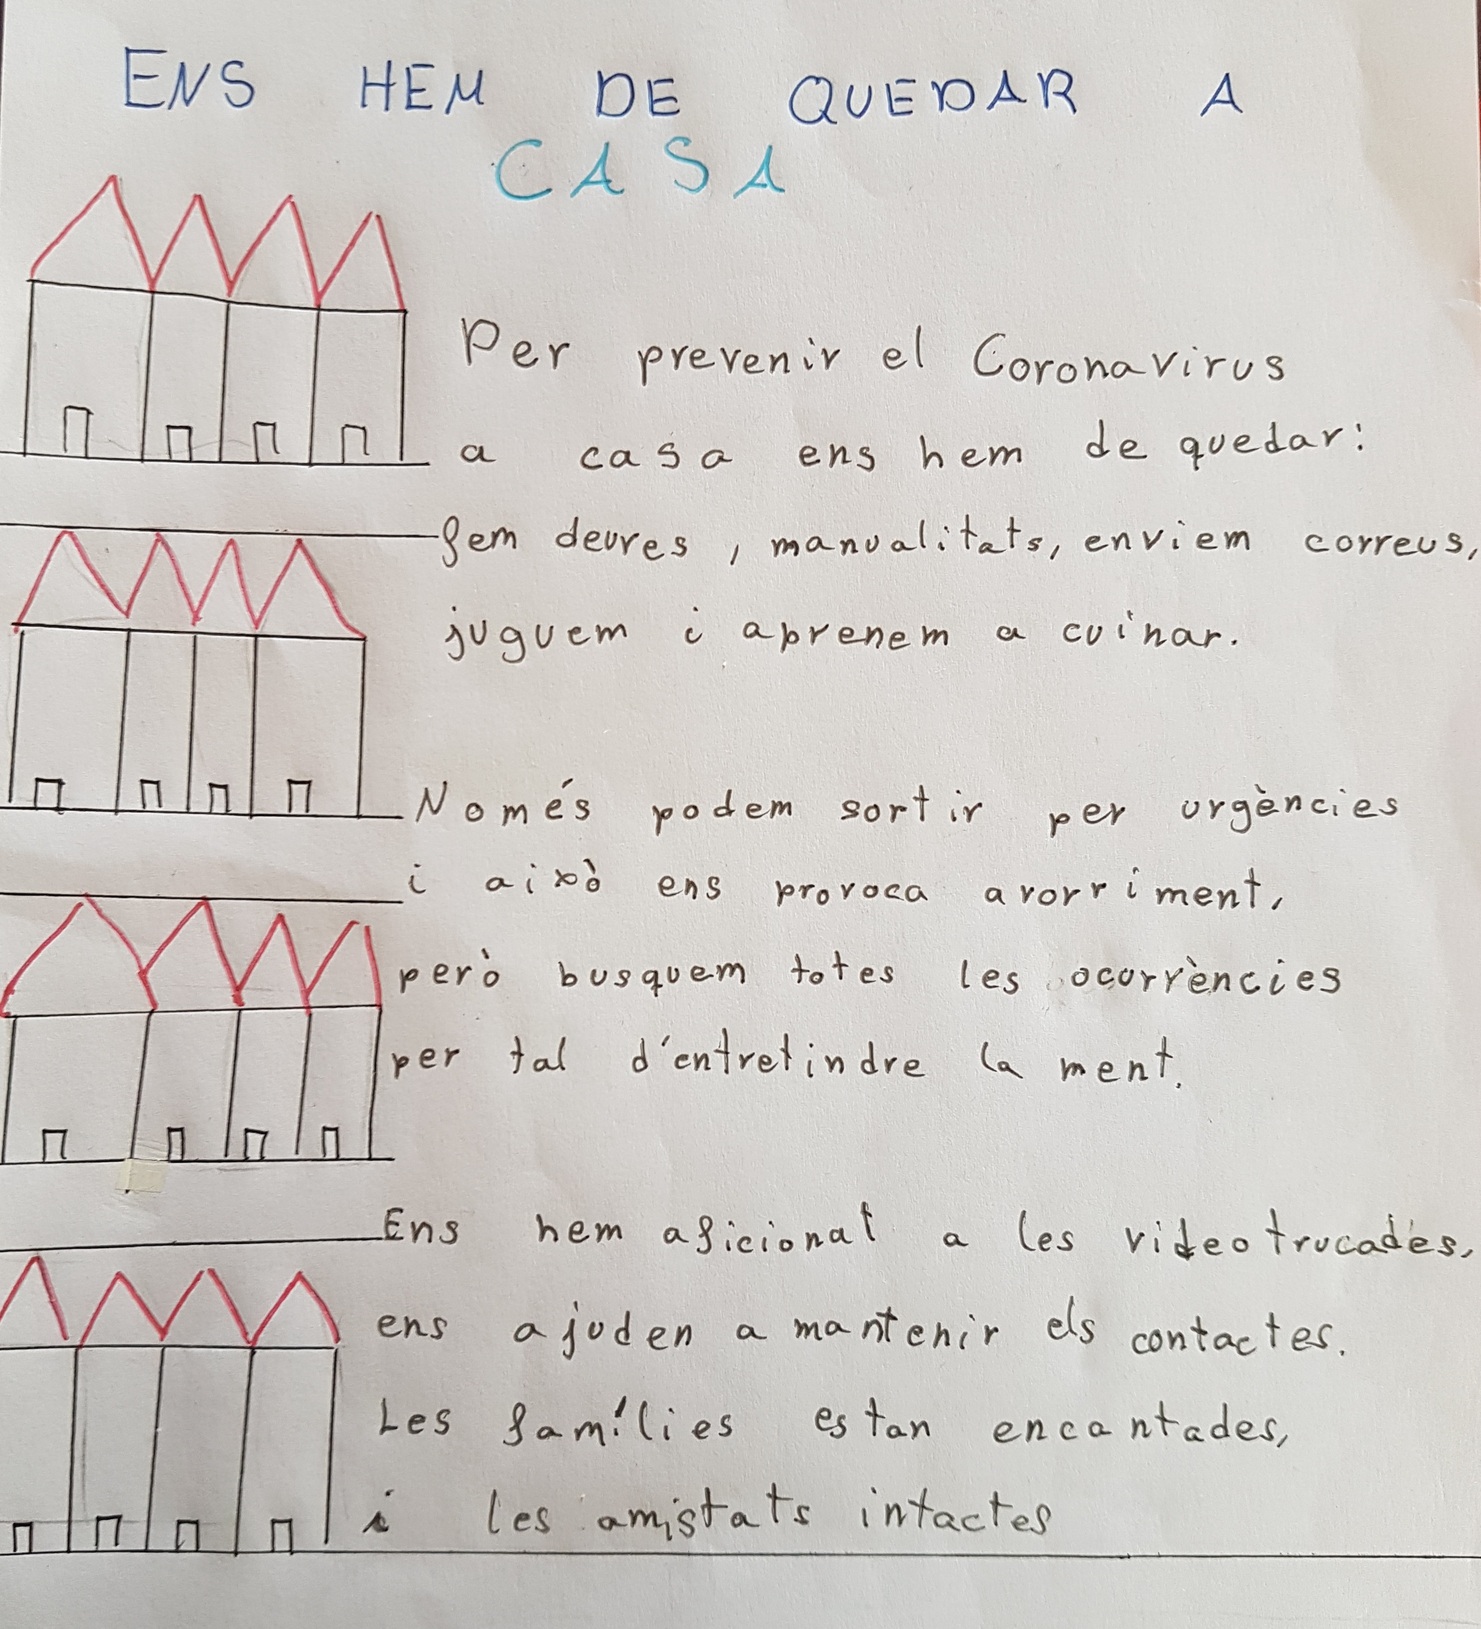 ENS HEM DE QUEDAR A
CASA
Per prevenir el Coronavirus
a casa ens hem de quedar:
fem deures, manualitats, enviem correus,
juguem i aprenem a cuinar.
Només podem sortir per urgències
i això ens provoca avorriment,
però busquem totes les ocurrències
per tal d'entretindre la ment.
Ens hem aficionat a les videotrucades,
ens ajuden a mantenir els contactes.
Les famílies estan encantades,
i les amistats intactes